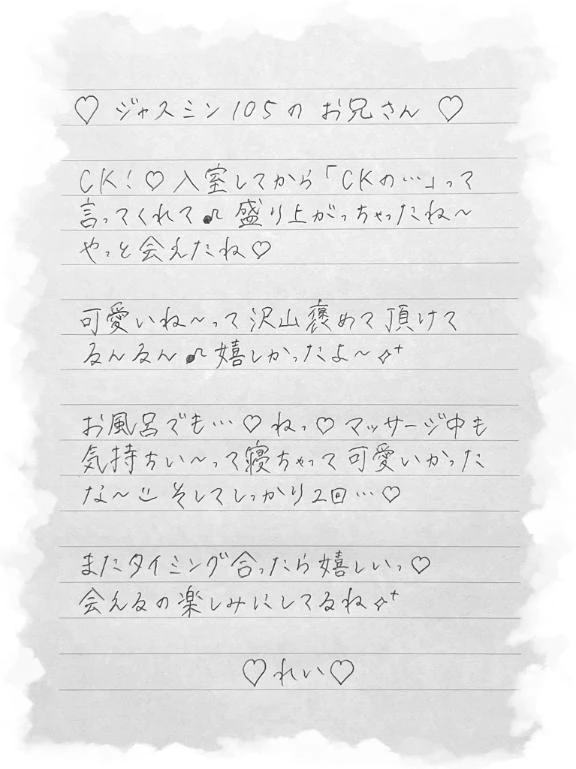 ♡ ジャスミン105の お兄さん ♡
CK！♡ 入室してから「CKの…」って
言ってくれて♫ 盛り上がっちゃったね～
やっと会えたね♡
可愛いね～って沢山褒めて頂けて
るんるん♫嬉しかったよ～✧⁺
お風呂でも…♡ ねっ♡ マッサージ中も
気持ちい～って寝ちゃって可愛いかった
な～そしてしっかり2回…♡
またタイミング合ったら嬉しいっ♡
会えるの楽しみにしてるね✧⁺
♡れい♡